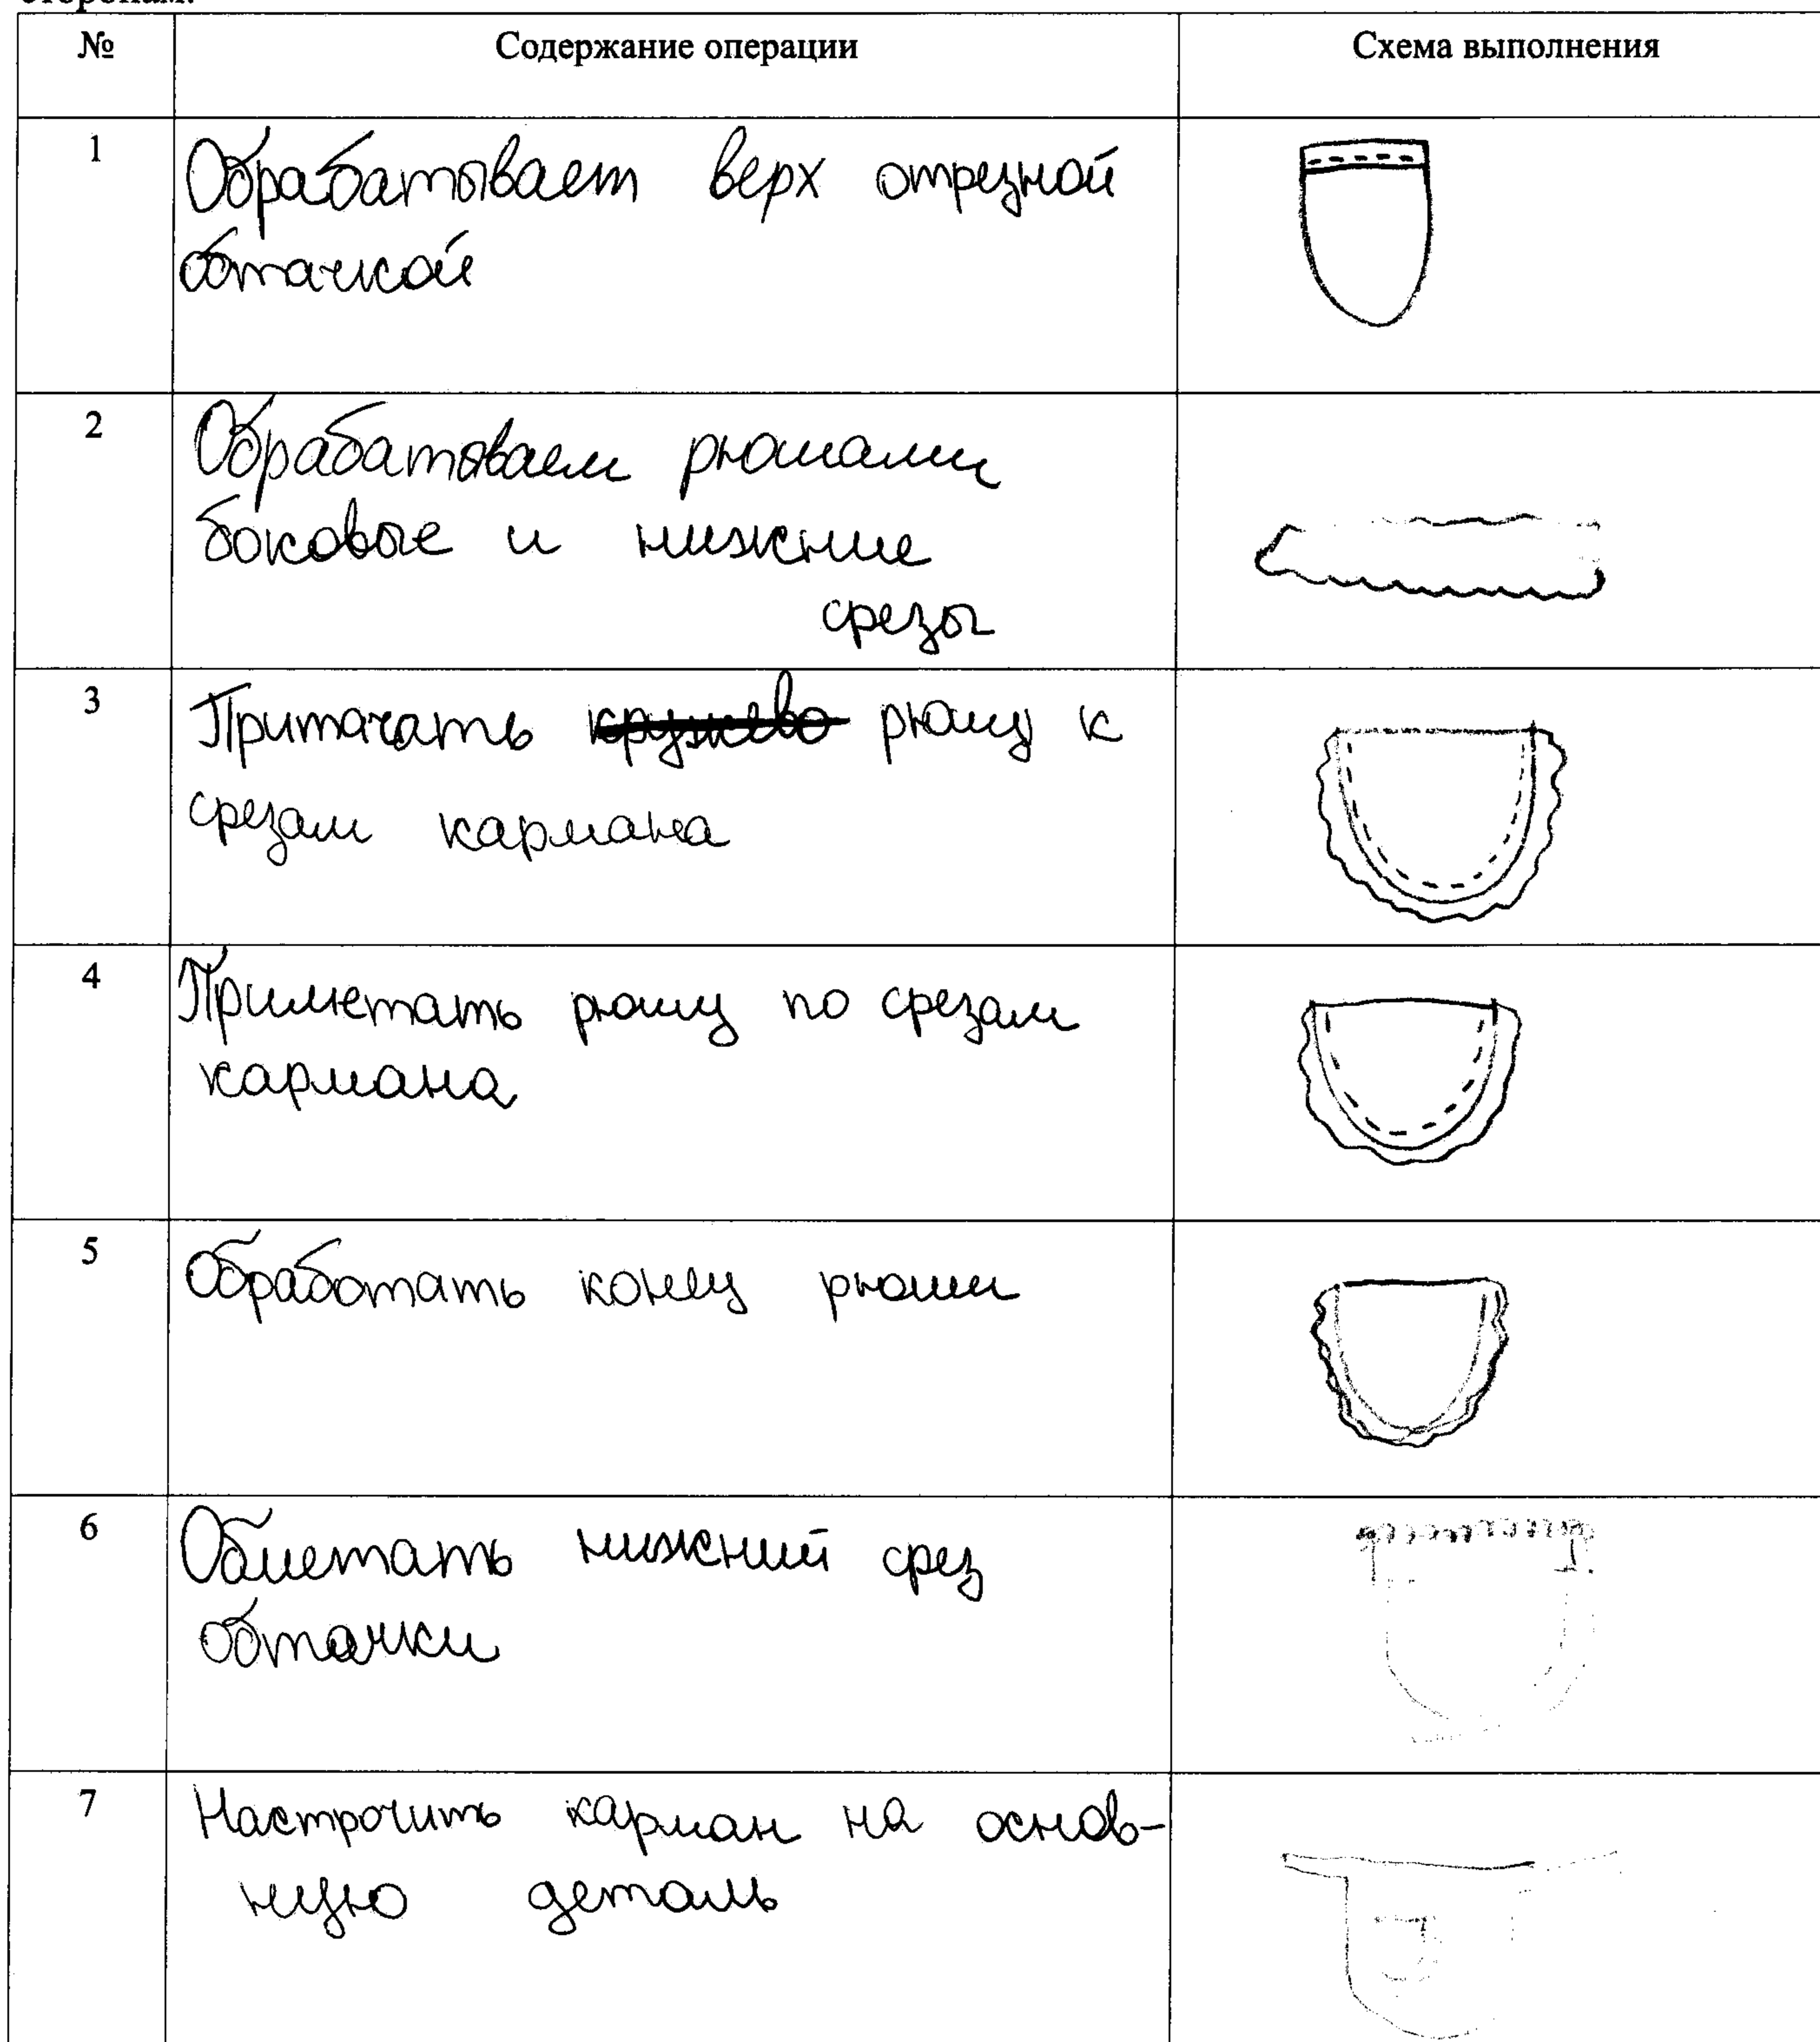 сторонам.
№ Содержание операции Схема выполнения
1 Обрабатывает верх отрезной
обтачкой
2 Обрабатываем рюшами
боковые и нижние
срезы
3 Притачать кружево рюшу к
срезам кармана
4 Приметать рюшу по срезам
кармана
5 Обработать конец рюши
6 Обметать нижний срез
обтачки
7 Настрочить карман на основ-
ную деталь